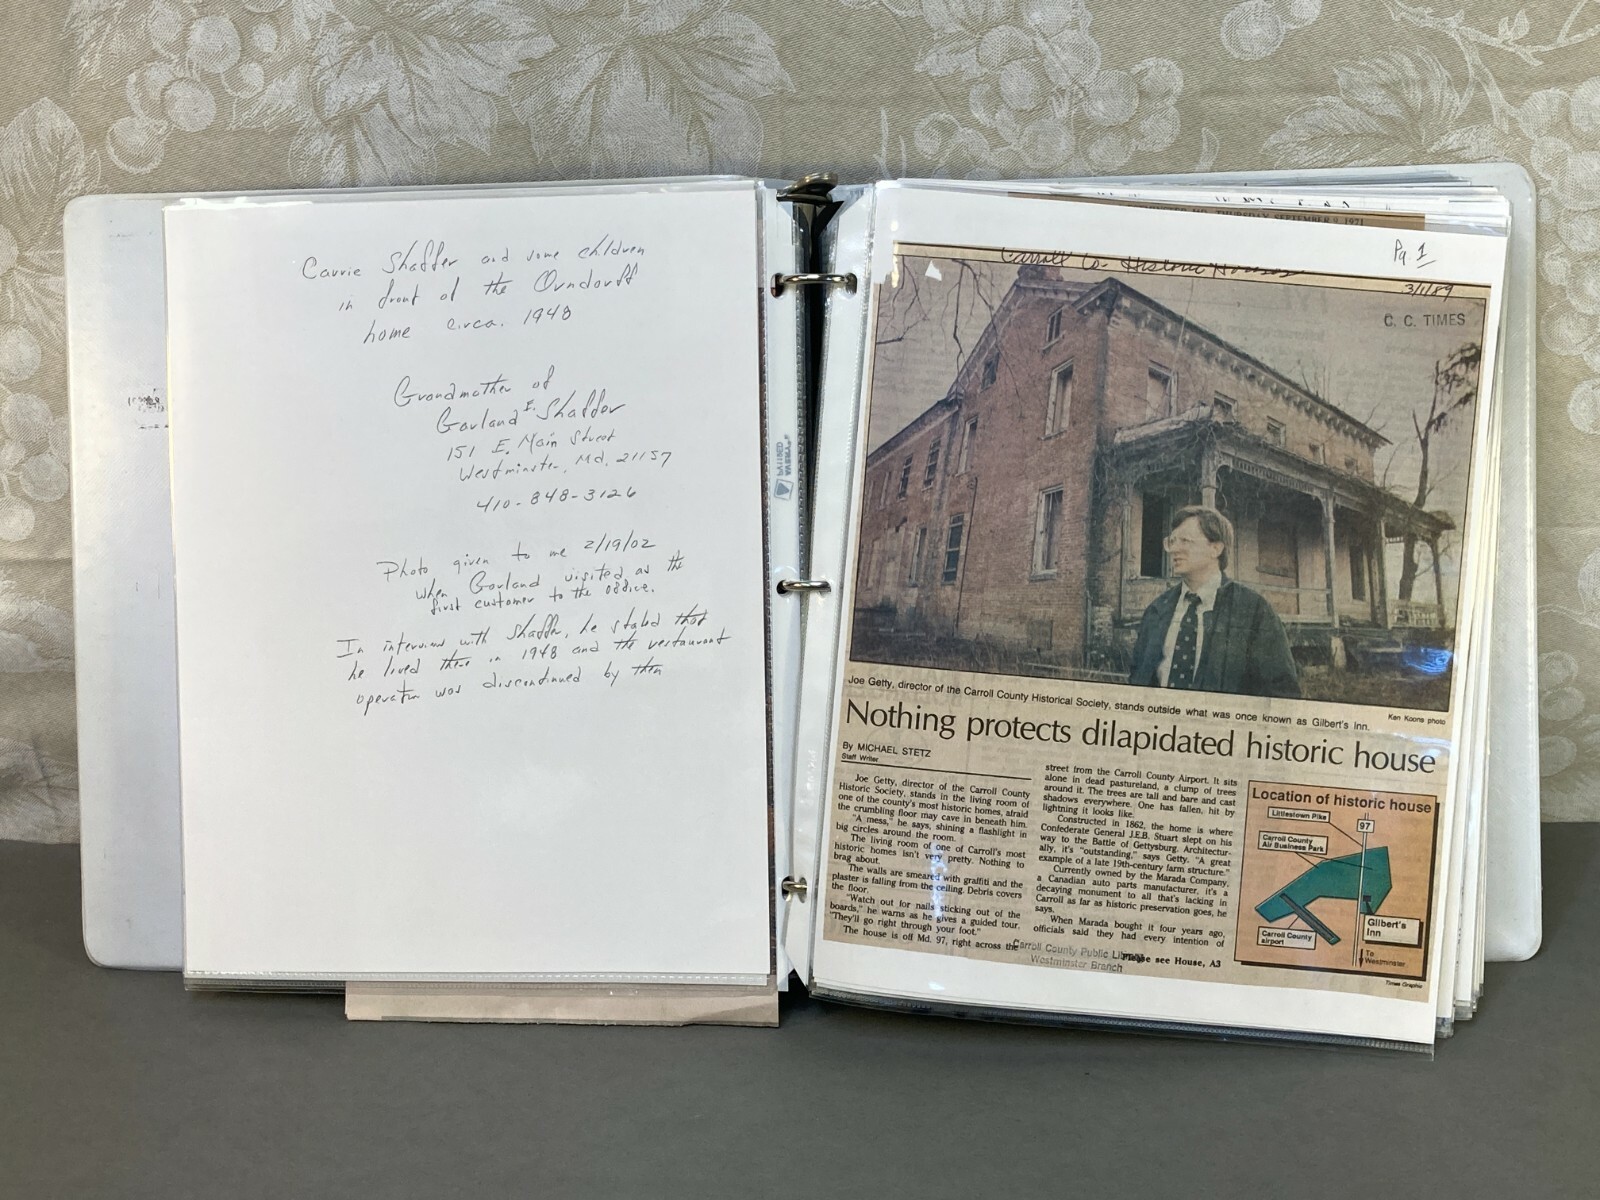 Carrie Shaffer and some children
in front of the Orndorff
home circa. 1948
Grandmother of
Garland E. Shaffer
151 E. Main Street
Westminster, Md. 21157
410-848-3126
Photo given to me 2/19/02
when Garland visited as the
first customer to the office.
In interview with Shaffer, he stated that
he lived there in 1948 and the restaurant
operation was discontinued by then
THURSDAY, SEPTEMBER 9, 1971
Pg 1
Carroll Co. Historic Houses
3/1/89
C. C. TIMES
Joe Getty, director of the Carroll County Historical Society, stands outside what was once known as Gilbert's Inn.
Ken Koons photo
Nothing protects dilapidated historic house
By MICHAEL STETZ
Staff Writer
Joe Getty, director of the Carroll County
Historic Society, stands in the living room of
one of the county's most historic homes, afraid
the crumbling floor may cave in beneath him.
"A mess," he says, shining a flashlight in
big circles around the room.
The living room of one of Carroll's most
historic homes isn't very pretty. Nothing to
brag about.
The walls are smeared with graffiti and the
plaster is falling from the ceiling. Debris covers
the floor.
"Watch out for nails sticking out of the
boards," he warns as he gives a guided tour.
"They'll go right through your foot."
The house is off Md. 97, right across the
street from the Carroll County Airport. It sits
alone in dead pastureland, a clump of trees
around it. The trees are tall and bare and cast
shadows everywhere. One has fallen, hit by
lightning it looks like.
Constructed in 1862, the home is where
Confederate General J.E.B. Stuart slept on his
way to the Battle of Gettysburg. Architectur-
ally, it's "outstanding," says Getty. "A great
example of a late 19th-century farm structure."
Currently owned by the Marada Company,
a Canadian auto parts manufacturer, it's a
decaying monument to all that's lacking in
Carroll as far as historic preservation goes, he
says.
When Marada bought it four years ago,
officials said they had every intention of
Please see House, A3
Carroll County Public Library
Westminster Branch
Location of historic house
Littlestown Pike
97
Carroll County
Air Business Park
Gilbert's
Inn
Carroll County
airport
To
Westminster
Times Graphic